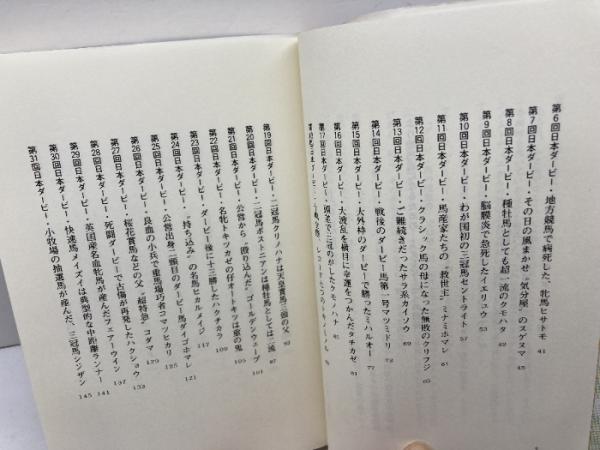 第6回日本ダービー・地方競馬で病死した、牝馬ヒサトモ 41
第7回日本ダービー・その日の風まかせ“気分屋”のスゲヌマ 45
第8回日本ダービー・種牡馬としても超一流のクモハタ 49
第9回日本ダービー・脳膜炎で急死したイエリュウ 53
第10回日本ダービー・わが国初の三冠馬セントライト 57
第11回日本ダービー・馬産家たちの“救世主”ミナミホマレ 61
第12回日本ダービー・クラシック馬の母になった無敗のクリフジ 65
第13回日本ダービー・ご難続きだったサラ系カイソウ 69
第14回日本ダービー・戦後のダービー馬第一号マツミドリ 73
第15回日本ダービー・大外枠のダービーで勝ったミハルオー 77
第16回日本ダービー・大波乱を横目に幸運をつかんだタチカゼ 81
第17回日本ダービー・頭差で三冠のがしたクモノハナ
第19回日本ダービー・二冠馬クリノハナは天皇賞馬三頭の父 93
第20回日本ダービー・二冠馬ボストニアンは種牡馬としては二流 97
第21回日本ダービー・公営から“殴り込んだ”ゴールデンウエーブ 101
第22回日本ダービー・名牝トキツカゼの仔オートキツは東の鬼 105
第23回日本ダービー・ダービー後に十三勝したハクチカラ 109
第24回日本ダービー・“持ち込み”の名馬ヒカルメイジ 117
第25回日本ダービー・公営出身二頭目のダービー馬ダイゴホマレ 121
第26回日本ダービー・良血の小兵で重馬場巧者コマツヒカリ 125
第27回日本ダービー・桜花賞馬などの父“超特急”コダマ 129
第28回日本ダービー・死闘ダービーで古傷が再発したハクショウ 133
第29回日本ダービー・英国産名血牝馬が産んだフェアーウイン 137
第30回日本ダービー・快速馬メイズイは典型的な中距離ランナー 141
第31回日本ダービー・小牧場の抽選馬が産んだ、三冠馬シンザン 145